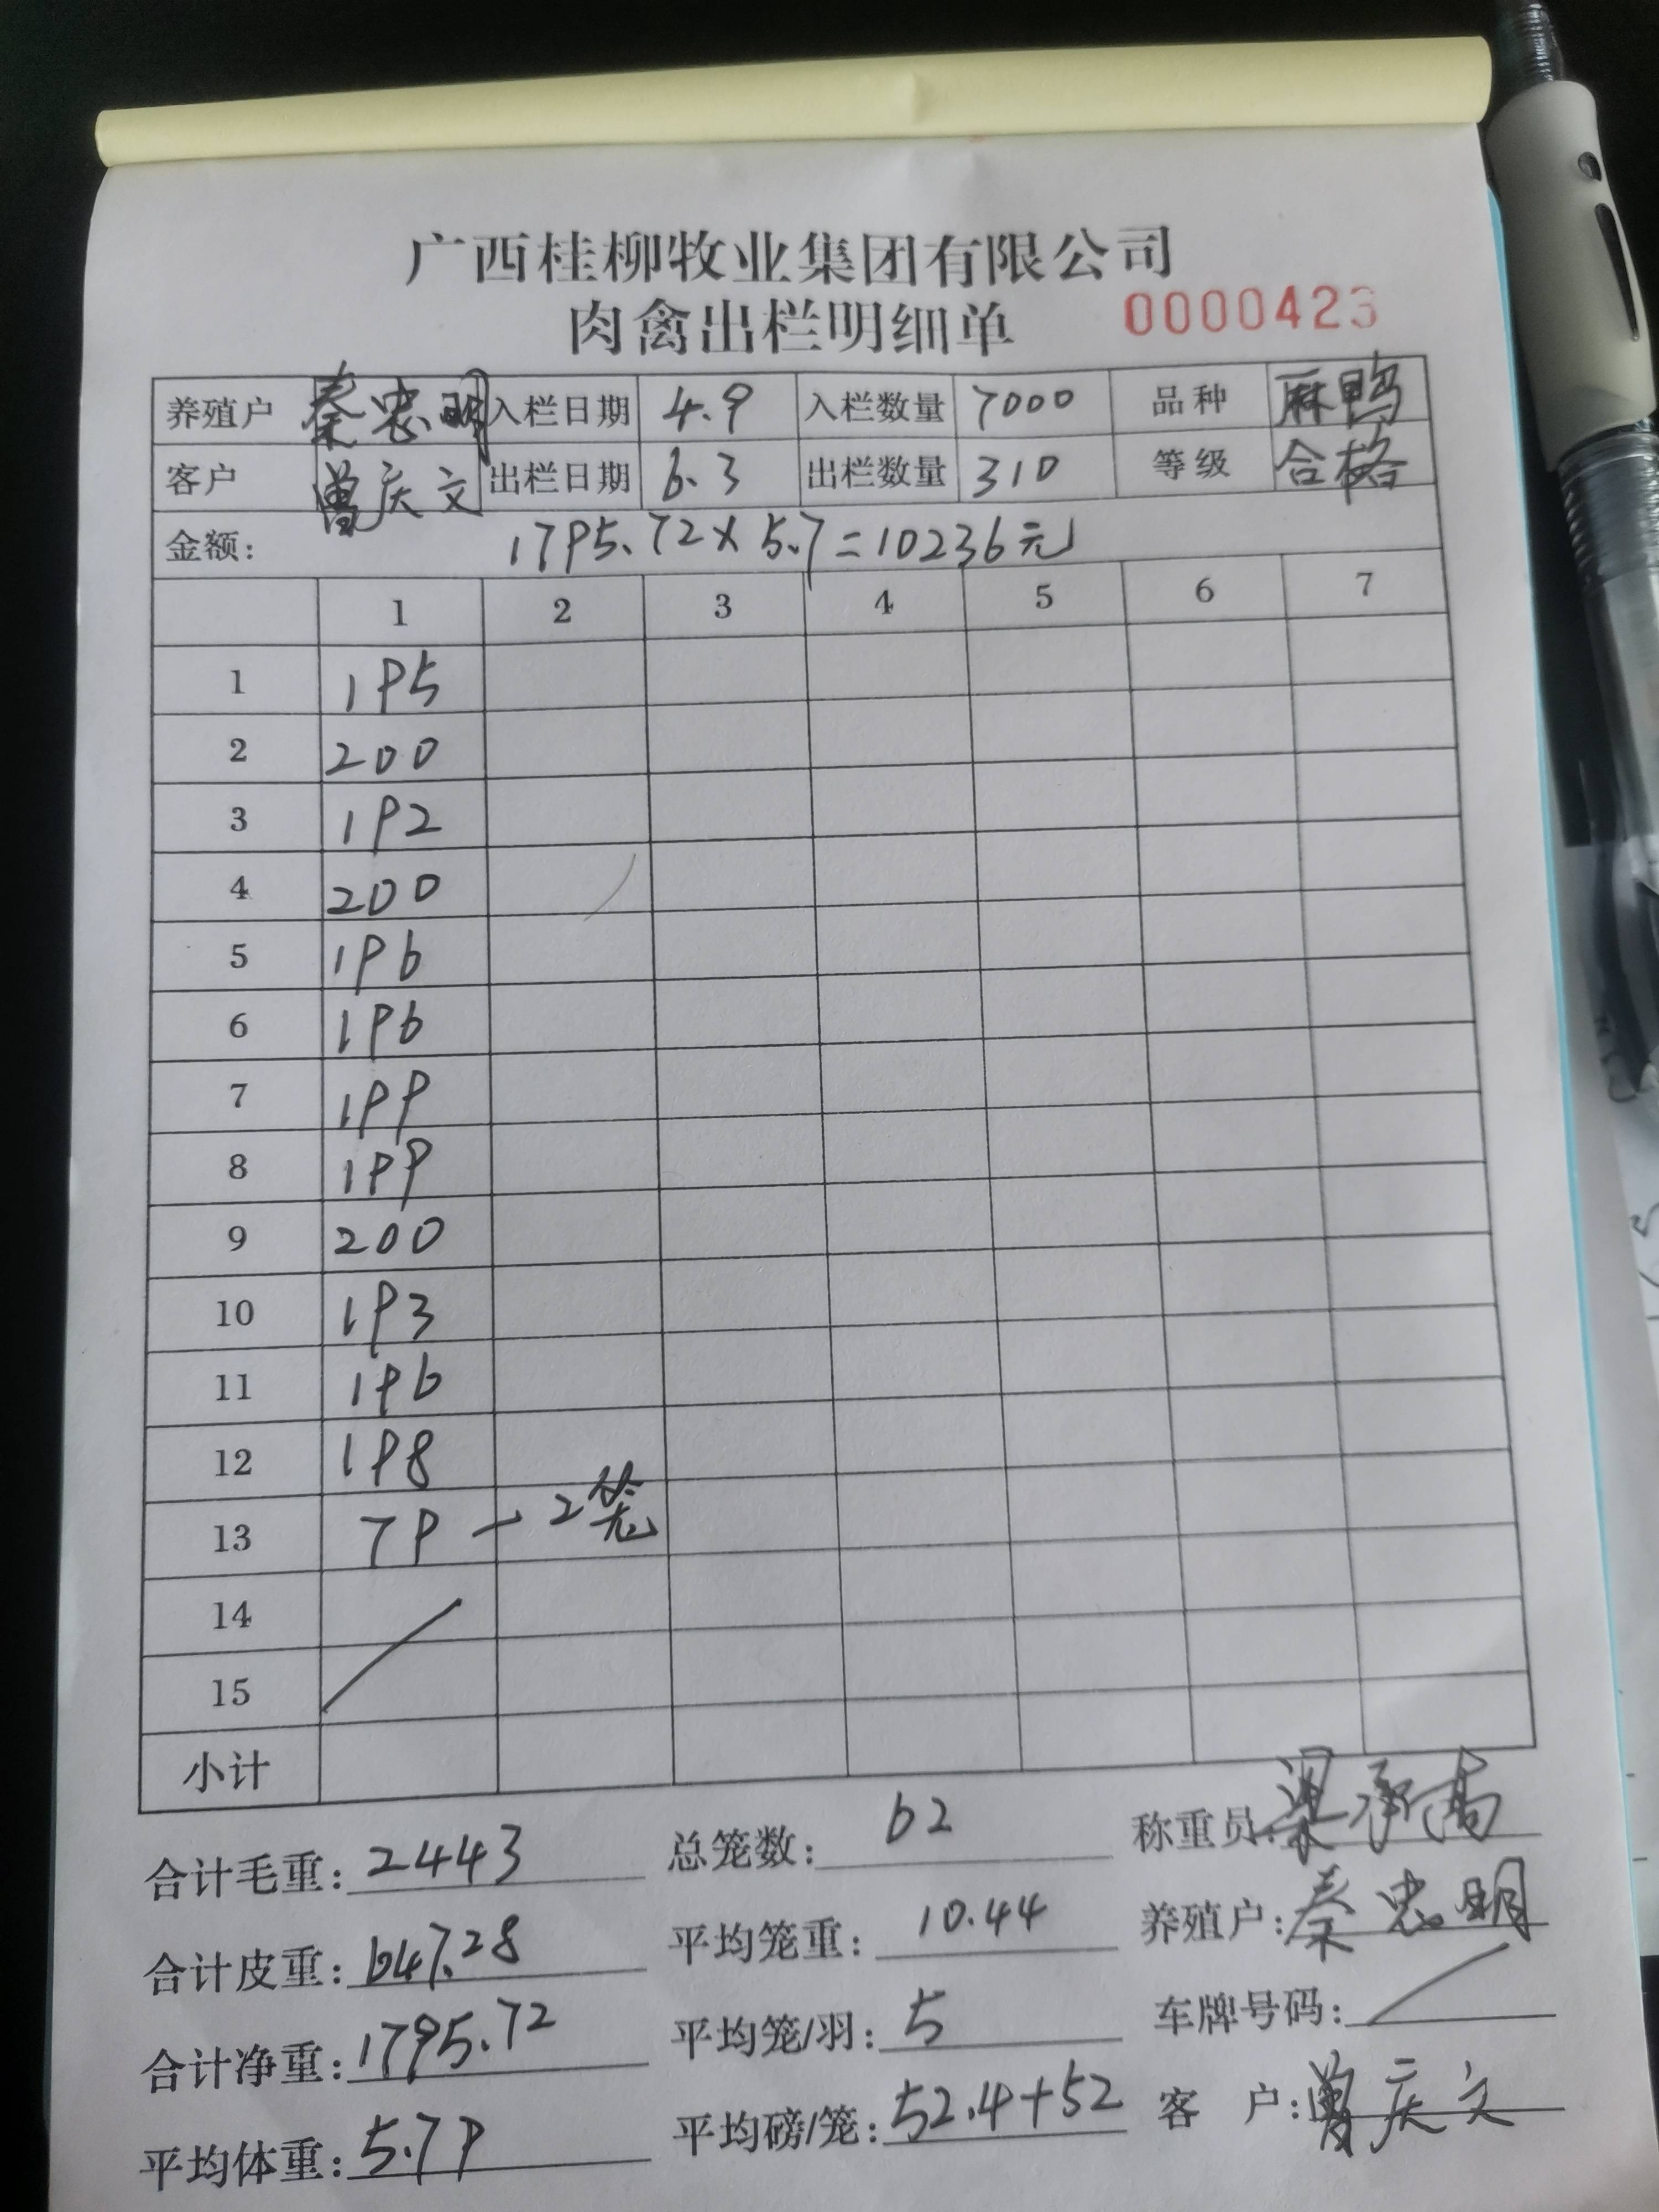 广西桂柳牧业集团有限公司
肉禽出栏明细单 0000423
养殖户 秦忠明 入栏日期 4.9 入栏数量 7000 品种 麻鸭
客户 曾庆文 出栏日期 6.3 出栏数量 310 等级 合格
金额: 1795.72×5.7=10236元
1 2 3 4 5 6 7
1 195
2 200
3 192
4 200
5 196
6 196
7 199
8 199
9 200
10 193
11 196
12 198
13 79 - 2笼
14
15
小计
合计毛重: 2443 总笼数: 62 称重员: 梁承高
合计皮重: 647.28 平均笼重: 10.44 养殖户: 秦忠明
合计净重: 1795.72 平均笼/羽: 5 车牌号码:
平均体重: 5.79 平均磅/笼: 52.4+52 客户: 曾庆文